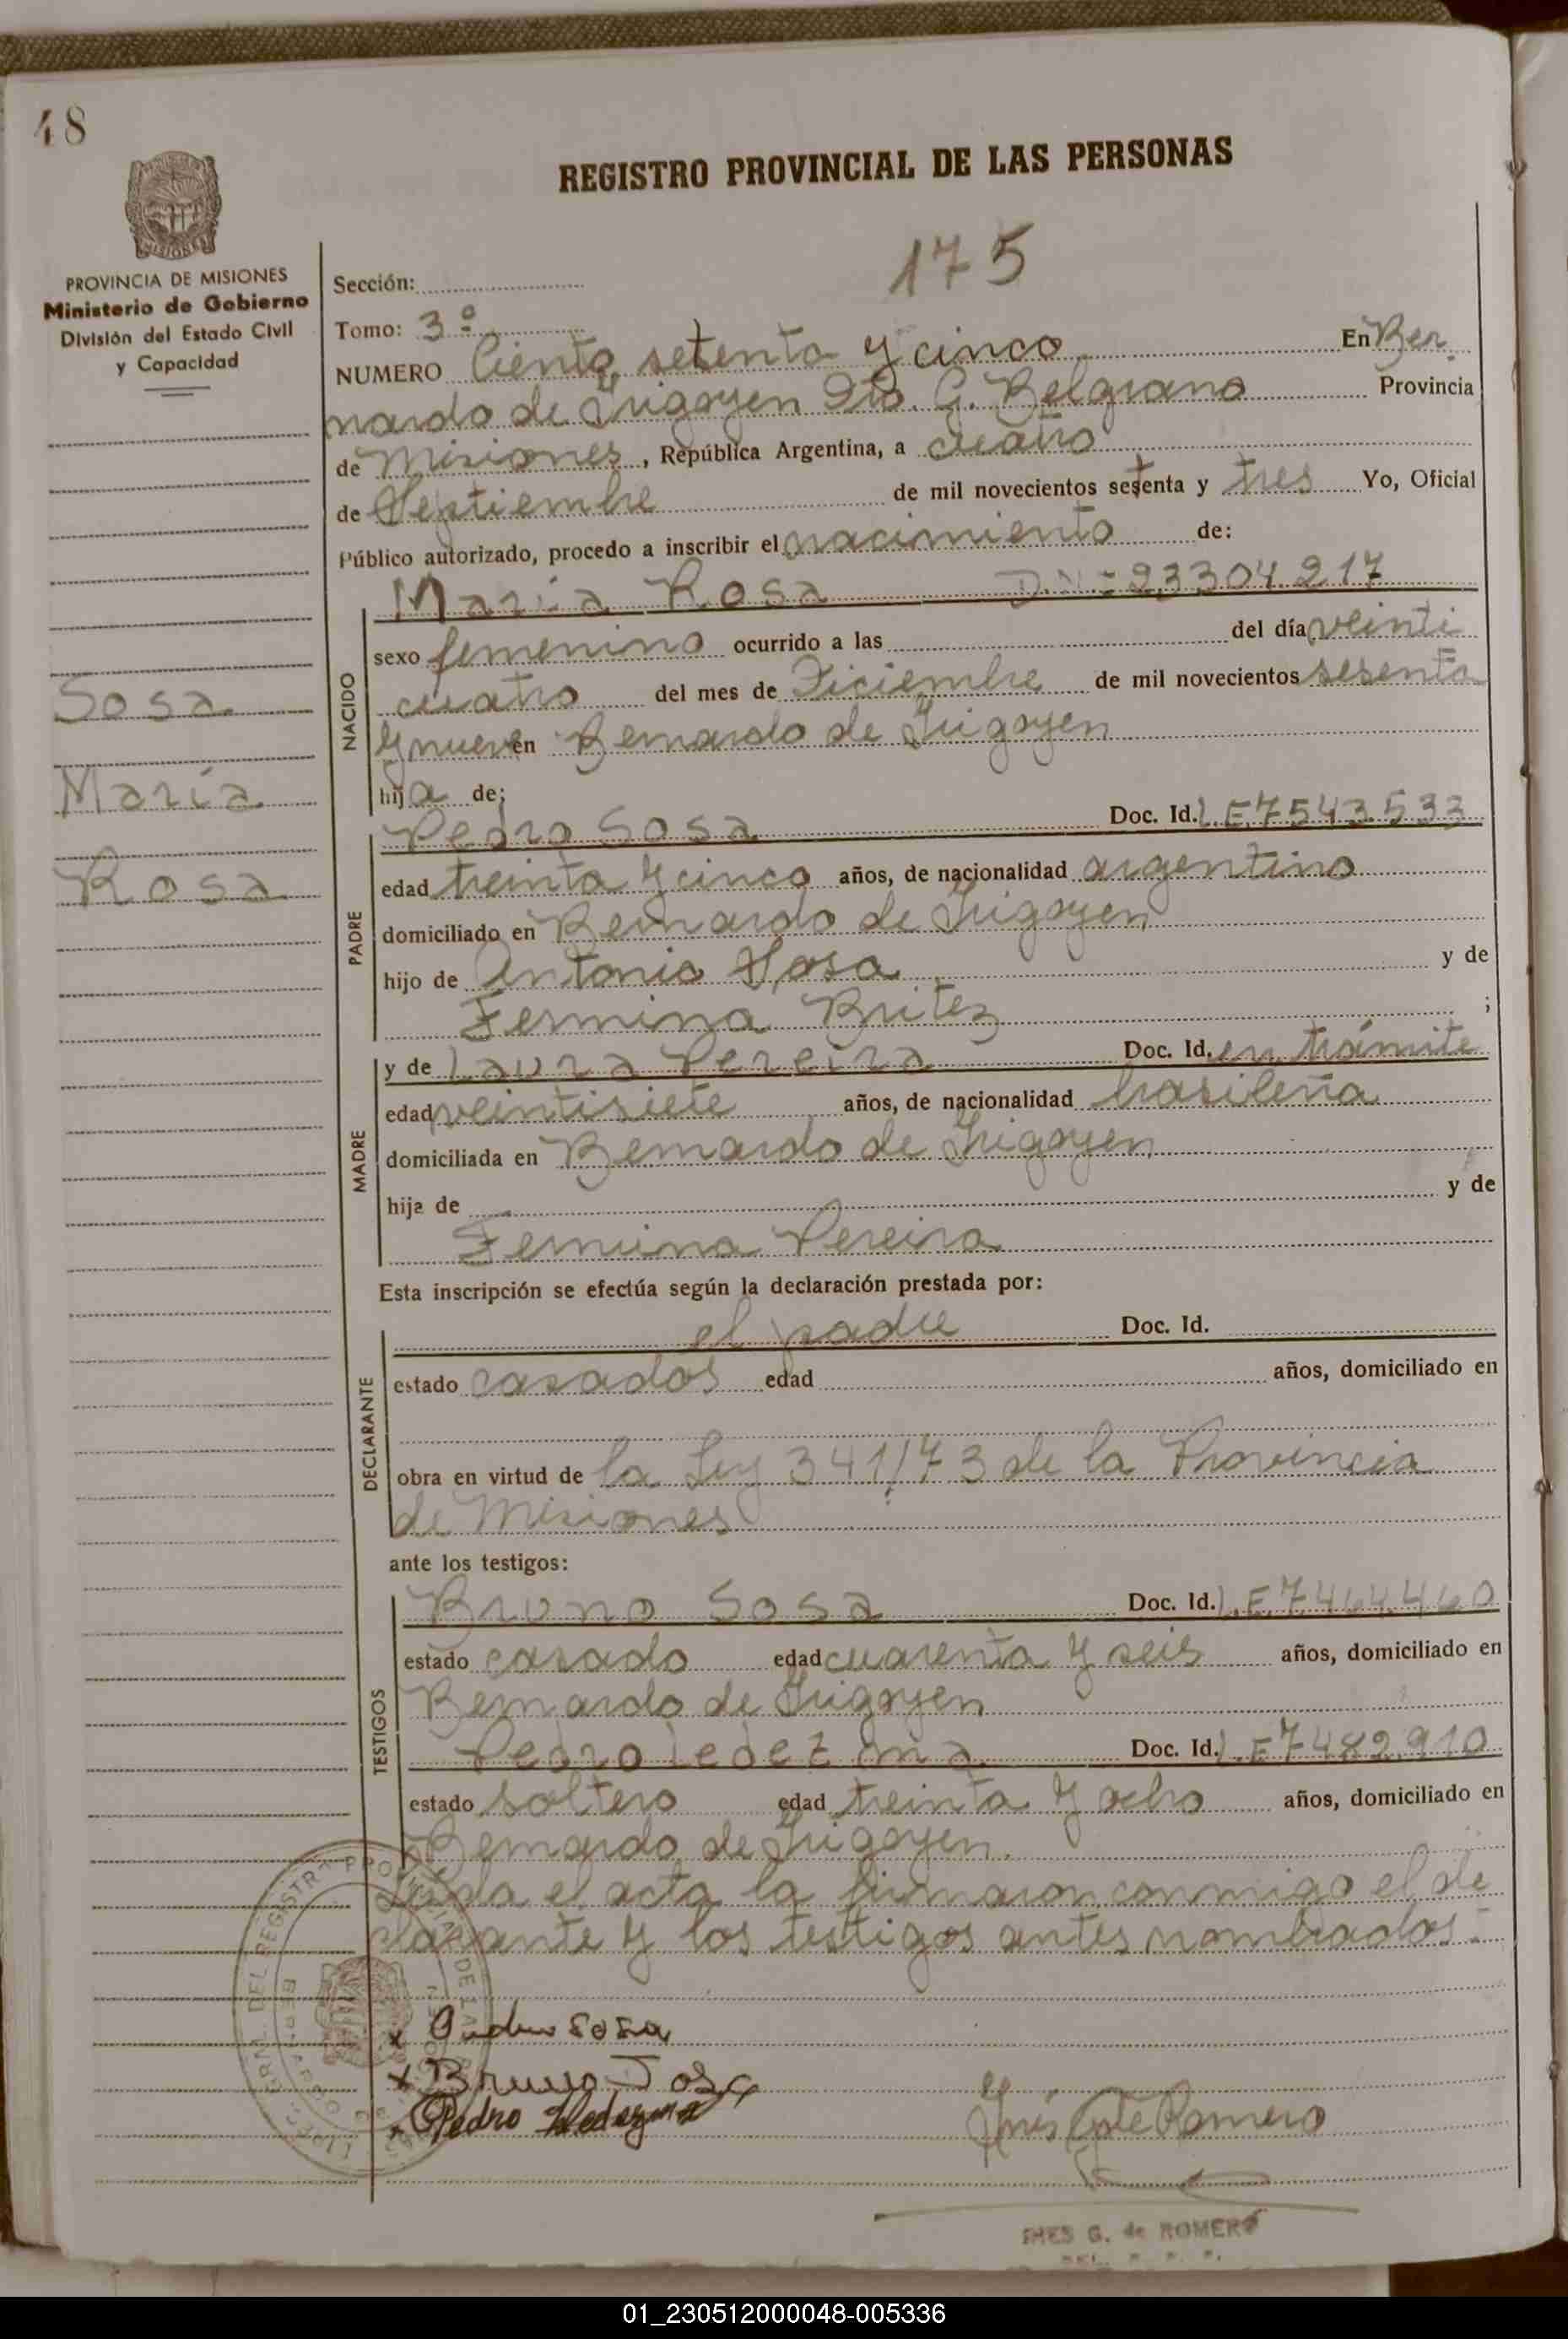 48
REGISTRO PROVINCIAL DE LAS PERSONAS
PROVINCIA DE MISIONES
Ministerio de Gobierno
División del Estado Civil
y Capacidad
175
Sección:
Tomo: 3º
NUMERO Ciento setenta y cinco En Ber
nardo de Irigoyen Dto. G. Belgrano Provincia
de Misiones, República Argentina, a cuatro
de Septiembre de mil novecientos setenta y tres Yo, Oficial
Público autorizado, procedo a inscribir el nacimiento de:
Sosa
María
Rosa
NACIDO
María Rosa 23304217
sexo femenino ocurrido a las del día veinti
cuatro del mes de Diciembre de mil novecientos sesenta
y nueve en Bernardo de Irigoyen
hija de:
PADRE
Pedro Sosa Doc. Id. L.E.7543.533
edad treinta y cinco años, de nacionalidad argentino
domiciliado en Bernardo de Irigoyen
hijo de Antonio Sosa y de
Fermina Britez ;
MADRE
y de Laura Pereira Doc. Id. en trámite
edad veintisiete años, de nacionalidad brasileña
domiciliada en Bernardo de Irigoyen
hija de y de
Fermina Pereira
Esta inscripción se efectúa según la declaración prestada por:
DECLARANTE
el padre Doc. Id.
estado casados edad años, domiciliado en
obra en virtud de la Ley 341/73 de la Provincia
de Misiones
ante los testigos:
TESTIGOS
Bruno Sosa Doc. Id. L.E.7464.460
estado casado edad cuarenta y seis años, domiciliado en
Bernardo de Irigoyen
Pedro Ledezma Doc. Id. L.E.7482.910
estado soltero edad treinta y ocho años, domiciliado en
Bernardo de Irigoyen.
Leída el acta la firmaron conmigo el de
clarante y los testigos antes nombrados.-
x Pedro Sosa
x Bruno Sosa
x Pedro Ledezma
Inés G de Romero
INES G. de ROMERO
01_230512000048-005336